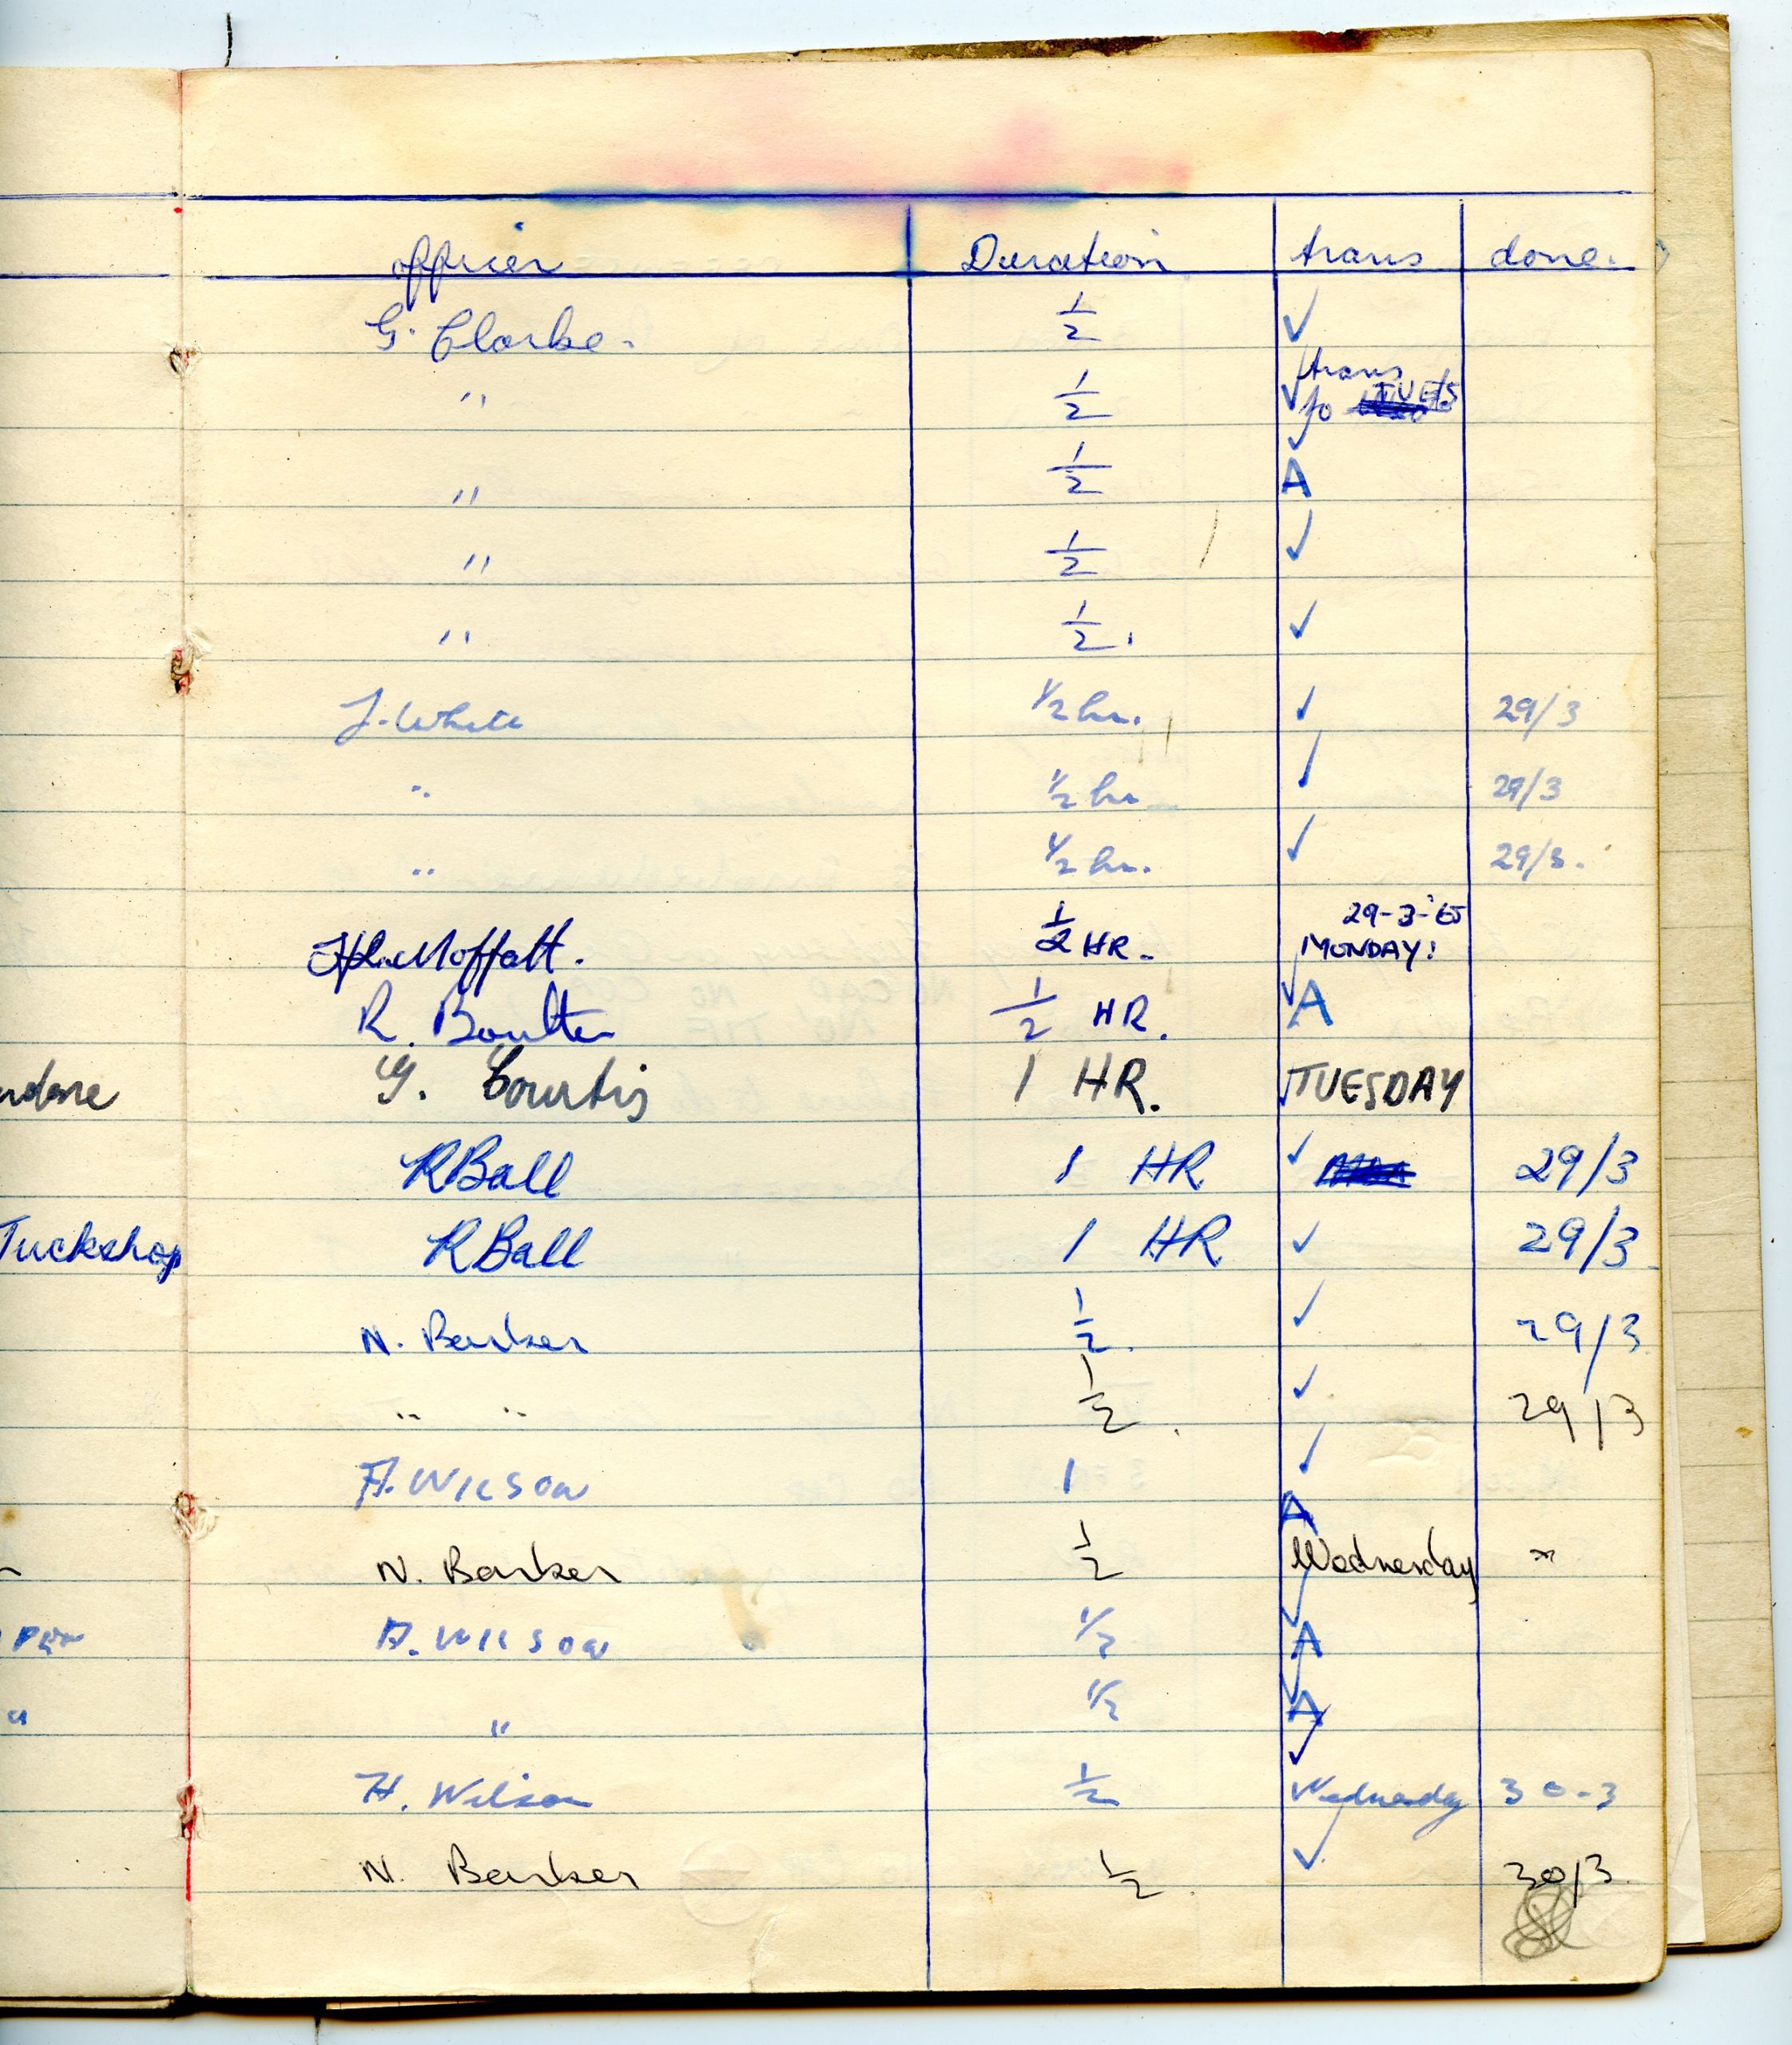 officer Duration trans done.
G. Clarke. 1/2 ✓
" 1/2 ✓ trans to TUES
" 1/2 A
" 1/2 ✓
" 1/2. ✓
J. White 1/2 hr. ✓ 29/3
" 1/2 hr ✓ 29/3
" 1/2 hr. ✓ 29/3.
Moffatt. 1/2 HR. 29-3-'65 MONDAY!
R. Boulter 1/2 HR. ✓ A
G. Courtis 1 HR. ✓ TUESDAY
R Ball 1 HR ✓ 29/3
Tuckshop R Ball 1 HR ✓ 29/3
N. Barker 1/2. ✓ 29/3
" " 1/2. ✓ 29/3
A. Wilson 1 ✓
N. Barker 1/2 A Wednesday "
A. Wilson 1/2 ✓ A
" 1/2 ✓ A
H. Wilson 1/2 ✓ Wednesday 30-3
N. Barker 1/2. ✓ 30/3.